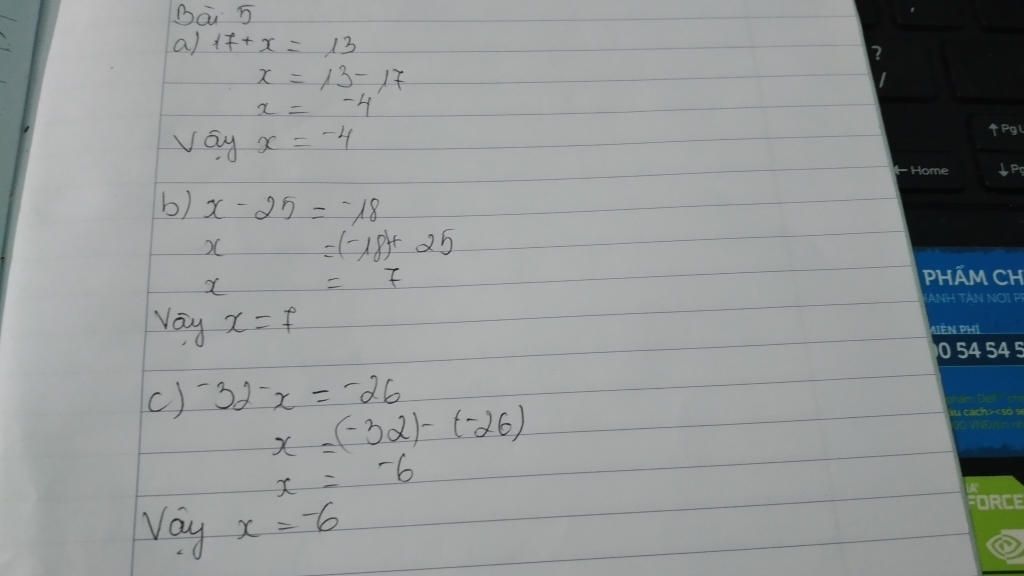 Bài 5
a) 17 + x = 13
x = 13 - 17
x = -4
Vậy x = -4
b) x - 25 = -18
x = (-18) + 25
x = 7
Vậy x = 7
c) -32 - x = -26
x = (-32) - (-26)
x = -6
Vậy x = -6
?
/
↑ Pg
← Home
↓ Pg
PHẨM CH
HÀNH TẬN NƠI
MIỄN PHÍ
00 54 54 5
FORCE